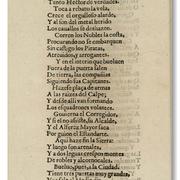 Tanto Hector de verdades.
Toca a rebato a vela,
Crece el orgulloso alarde,
Y al son del metal herido
Los cauallos se deshazen.
Corren los Nobles la costa,
Procurando no se embarquen
Sin castigo los Piratas,
Atreuidos, y arrogantes.
Y en el interin que buelue
Fuera de la puerta salen
De tierra, las compañias
Siguiendo sus Capitanes.
Hazese plaça de armas
A las raizes del Calpe;
Y desde alli van formando
Los esquadrones
Gouierna el Corregidor,
Y si no assiste, su Alcalde,
Y el Alferez Mayor saca
Por guion el Estandarte.
Aqui haze fin la sierra:
Y luego son arenales,
Y a dos leguas crespos montes
De robles y alcornocales.
Buelto, pues, a la Ciudad,
Tiene tres puertas muy grandes,